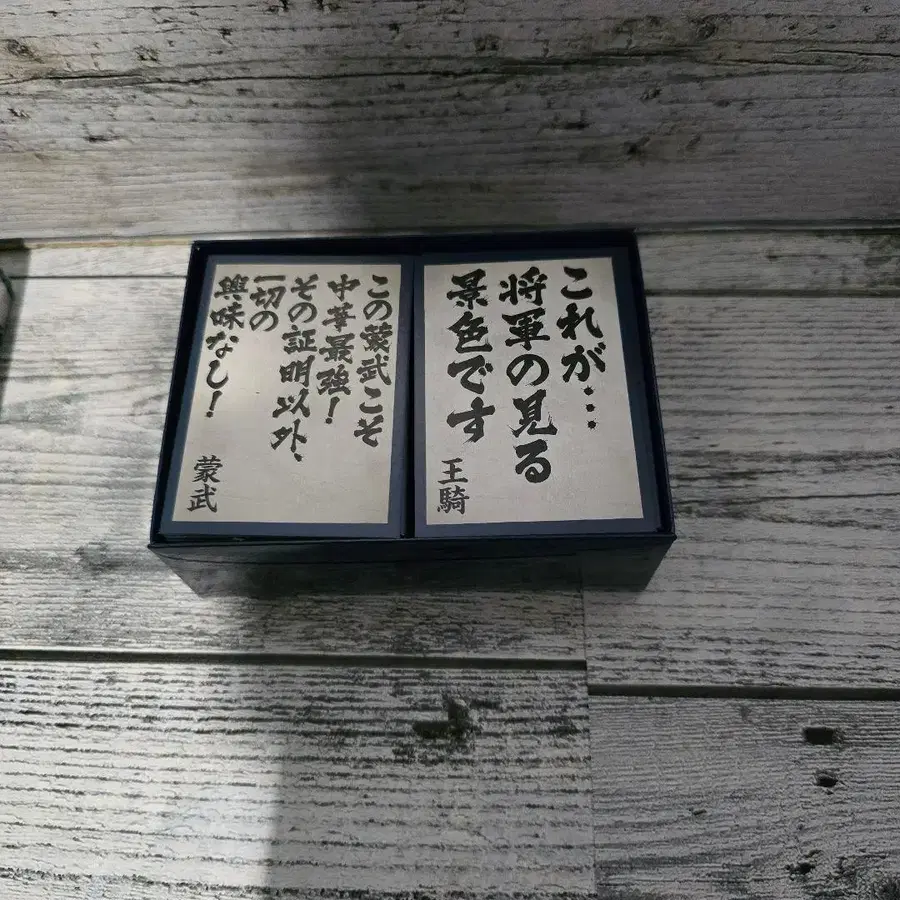 これが…
将軍の見る
景色です
王騎
この蒙武こそ
中華最強！
その証明以外、
一切の
興味なし！
蒙武